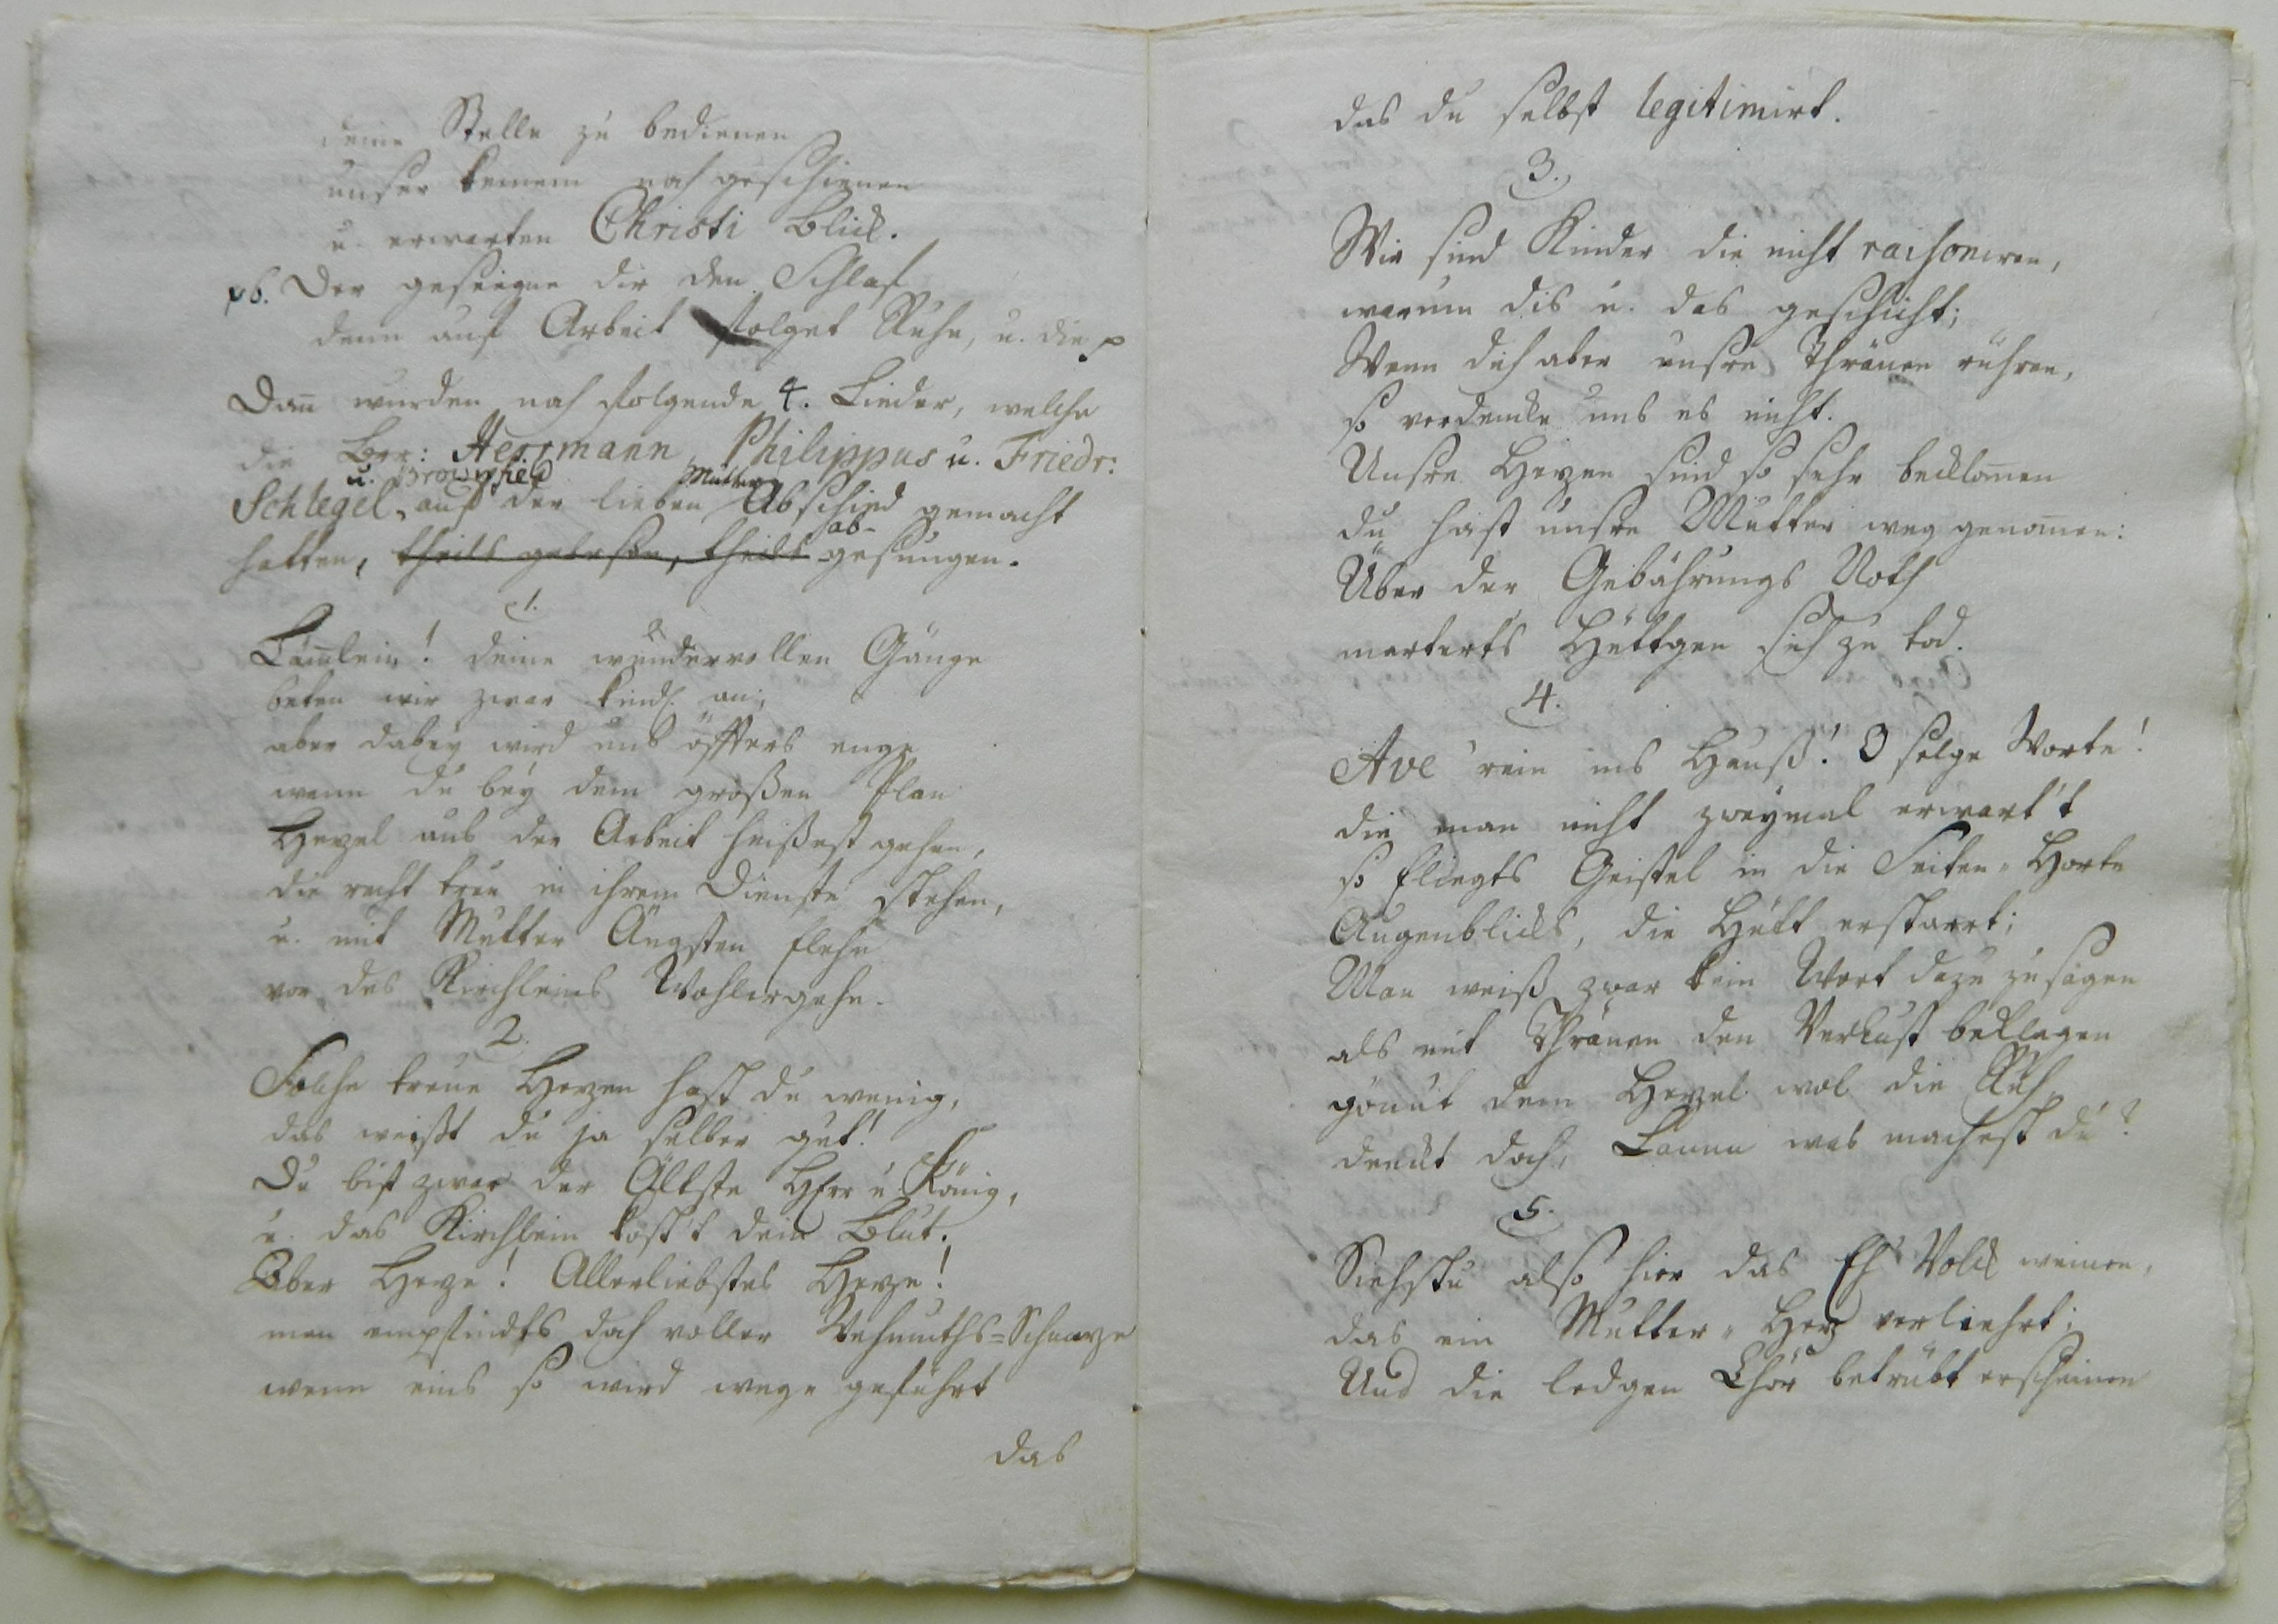 deine Stelle zu bedienen
unser keinem noch geschienen
u. erwarten Christi Blick.
pb. Der gesegne dir den Schlaf
denn auf Arbeit folget Ruhe, u. die p
Dan̄ wurden noch folgende 4. Lieder, welche
die Brr: Herrmann, Philippus u. Friedr:
u. Brownfield Mutter
Schlegel, auf der lieben Abschied gemacht
ab-
hatten, theils gelesen, theils gesungen.
1.
Läm̄lein! deine wundervollen Gänge
beten wir zwar kindl. an;
aber dabey wird uns öffters enge
wenn du bey dem großen Plan
Herzel aus der Arbeit heißest gehen,
die recht treu in ihrem Dienste stehen,
u. mit Mutter Ängsten flehn
vor des Kirchleins Wohlergehn.
2.
Solche treue Herzen hast du wenig,
das weißt du ja selber gut!
Du bist zwar der Ältste Herr u. König,
u. das Kirchlein kost't dein Blut.
Aber Herze! Allerliebstes Herze!
man empfindts doch voller Wehmuths-Schmerze
wenn eins so wird wege geführt
das
das du selbst legitimirt.
3.
Wir sind Kinder die nicht raisoniren,
warum dis u. das geschicht;
Wenn dich aber unsre Thränen rühren,
so verdencke uns es nicht.
Unsre Herzen sind so sehr beklom̄en
du hast unsre Mutter weg genom̄en:
Über der Gebährungs Noth
marterts Hüttgen sich zu tod.
4.
Ave 'rein ins Hauß! O selge Worte!
die man nicht zweymal erwart't
so fliegts Geistel in die Seiten-Horte
Augenblicks, die Hütt erstarrt;
Man weiß zwar kein Wort dazu zu sagen
als mit Thränen den Verlust beklagen
gönnt dem Herzel wol die Ruh,
denckt doch, Lamm was machest du?
5.
Siehstu also hier das Eh Volck weinen,
das ein Mutter-Herz verliehrt;
Und die ledgen Chör betrübt erscheinen